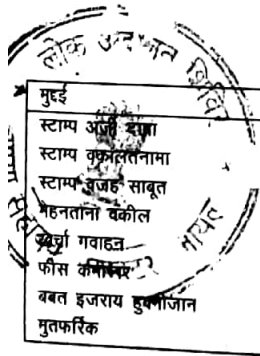 लोक
मुद्दई
स्टाम्प अर्जी दावा
स्टाम्प वकालतनामा
स्टाम्प वजह साबूत
मेहनताना वकील
खर्चा गवाहन
फीस कमीश्नर
बबत इजराय हुक्मीजान
मुतफर्रिक